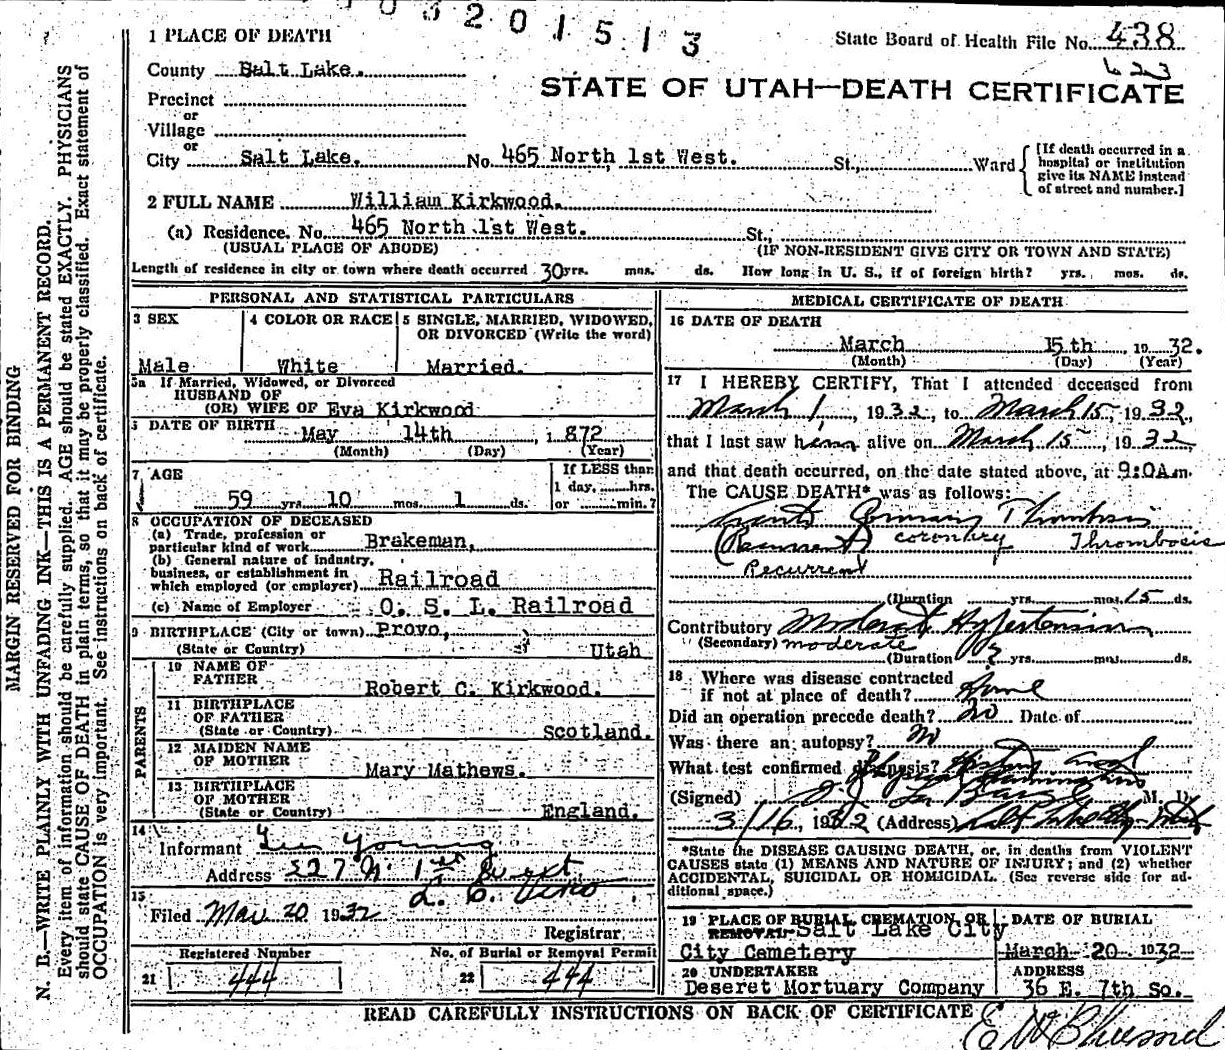 0 3 2 0 1 5 1 3
State Board of Health File No. 438
623
STATE OF UTAH—DEATH CERTIFICATE
1 PLACE OF DEATH
County Salt Lake.
Precinct
or
Village
or
City Salt Lake. No. 465 North 1st West. St., Ward
[If death occurred in a
hospital or institution
give its NAME instead
of street and number.]
2 FULL NAME William Kirkwood.
(a) Residence. No. 465 North 1st West. St.,
(USUAL PLACE OF ABODE) (IF NON-RESIDENT GIVE CITY OR TOWN AND STATE)
Length of residence in city or town where death occurred 30 yrs. mos. ds. How long in U. S., if of foreign birth? yrs. mos. ds.
PERSONAL AND STATISTICAL PARTICULARS
3 SEX
Male
4 COLOR OR RACE
White
5 SINGLE, MARRIED, WIDOWED,
OR DIVORCED (Write the word)
Married.
5a If Married, Widowed, or Divorced
HUSBAND OF
(OR) WIFE OF Eva Kirkwood
6 DATE OF BIRTH May 14th, 1872
(Month) (Day) (Year)
7 AGE
59 yrs. 10 mos. 1 ds.
If LESS than
1 day, hrs.
or min.?
8 OCCUPATION OF DECEASED
(a) Trade, profession or
particular kind of work Brakeman,
(b) General nature of industry,
business, or establishment in
which employed (or employer) Railroad
(c) Name of Employer O. S. L. Railroad
9 BIRTHPLACE (City or town) Provo,
(State or Country) Utah
PARENTS
10 NAME OF
FATHER Robert C. Kirkwood.
11 BIRTHPLACE
OF FATHER
(State or Country) Scotland.
12 MAIDEN NAME
OF MOTHER Mary Mathews.
13 BIRTHPLACE
OF MOTHER
(State or Country) England.
14
Informant Young
Address 227 N. 1st West
15
Filed Mar 20 1932
Registrar
Registered Number
21 444
No. of Burial or Removal Permit
22 444
MEDICAL CERTIFICATE OF DEATH
16 DATE OF DEATH
March 15th, 1932.
(Month) (Day) (Year)
17 I HEREBY CERTIFY, That I attended deceased from
March 1, 1932, to March 15, 1932,
that I last saw him alive on March 15, 1932
and that death occurred, on the date stated above, at 9:0 A.m.
The CAUSE DEATH* was as follows:
Coronary Thrombosis
(Recurrent) coronary Thrombosis
Recurrent
(Duration yrs. mos. 15 ds.
Contributory Moderate Hypertension
(Secondary) moderate
(Duration ? yrs. mos. ds.
18 Where was disease contracted
if not at place of death? Home
Did an operation precede death? No Date of
Was there an autopsy? No
What test confirmed diagnosis? History and
Physical Examination
(Signed) M. D.
3/16, 1932 (Address) Salt Lake City Utah
*State the DISEASE CAUSING DEATH, or, in deaths from VIOLENT
CAUSES state (1) MEANS AND NATURE OF INJURY; and (2) whether
ACCIDENTAL, SUICIDAL OR HOMICIDAL. (See reverse side for ad-
ditional space.)
19 PLACE OF BURIAL CREMATION OR
REMOVAL Salt Lake City
City Cemetery
DATE OF BURIAL
March 20 1932
20 UNDERTAKER
Deseret Mortuary Company
ADDRESS
36 E. 7th So.
READ CAREFULLY INSTRUCTIONS ON BACK OF CERTIFICATE
MARGIN RESERVED FOR BINDING
N. B.—WRITE PLAINLY WITH UNFADING INK—THIS IS A PERMANENT RECORD.
Every item of information should be carefully supplied. AGE should be stated EXACTLY. PHYSICIANS
should state CAUSE OF DEATH in plain terms, so that it may be properly classified. Exact statement of
OCCUPATION is very important. See instructions on back of certificate.